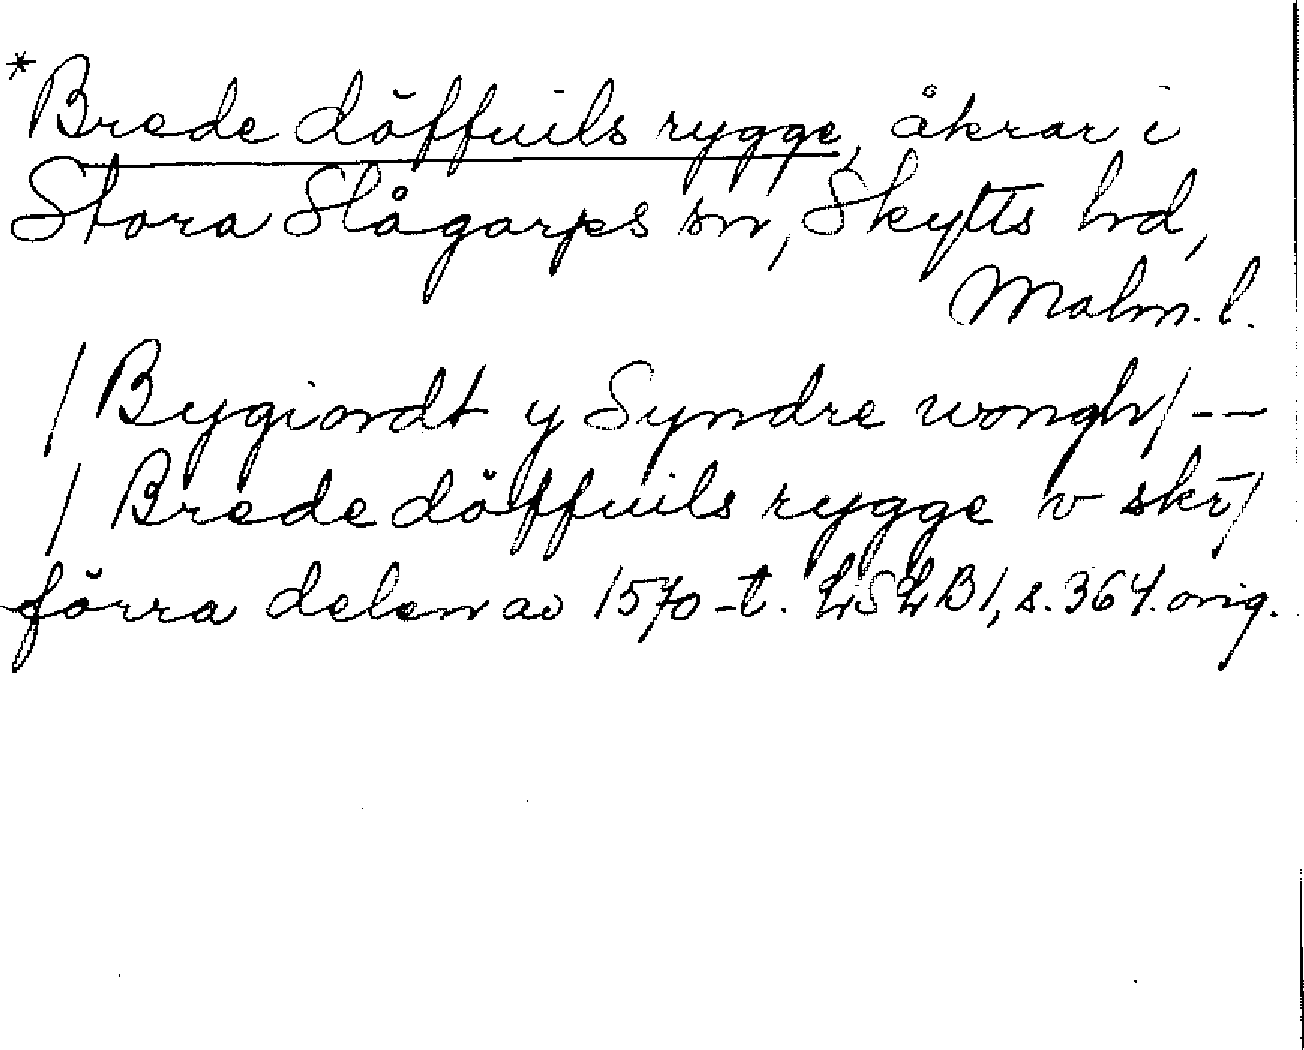 *Brede döffuils rygge, åkrar i
Stora Slågarps sn, Skytts hd,
Malm. l.
/ Bygiordt y Syndre wongh / --
/ Brede döffuils rygge v skr /
förra delen av 1570-t. LSLB1, s. 364. orig.